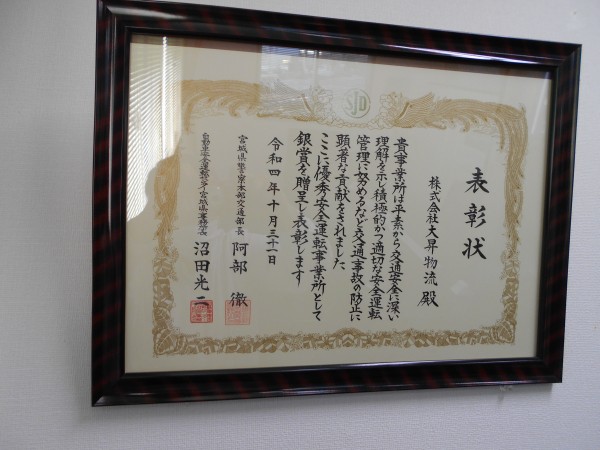 SJD
表彰状
株式会社大昇物流 殿
貴事業所は平素から交通安全に深い
理解を示し積極的かつ適切な安全運転
管理に努めるなど交通事故の防止に
顕著な貢献をされました
ここに優秀安全運転事業所として
銀賞を贈呈し表彰します
令和四年十月三十一日
宮城県警察本部交通部長 阿部 徹
自動車安全運転センター宮城県事務所長 沼田光二